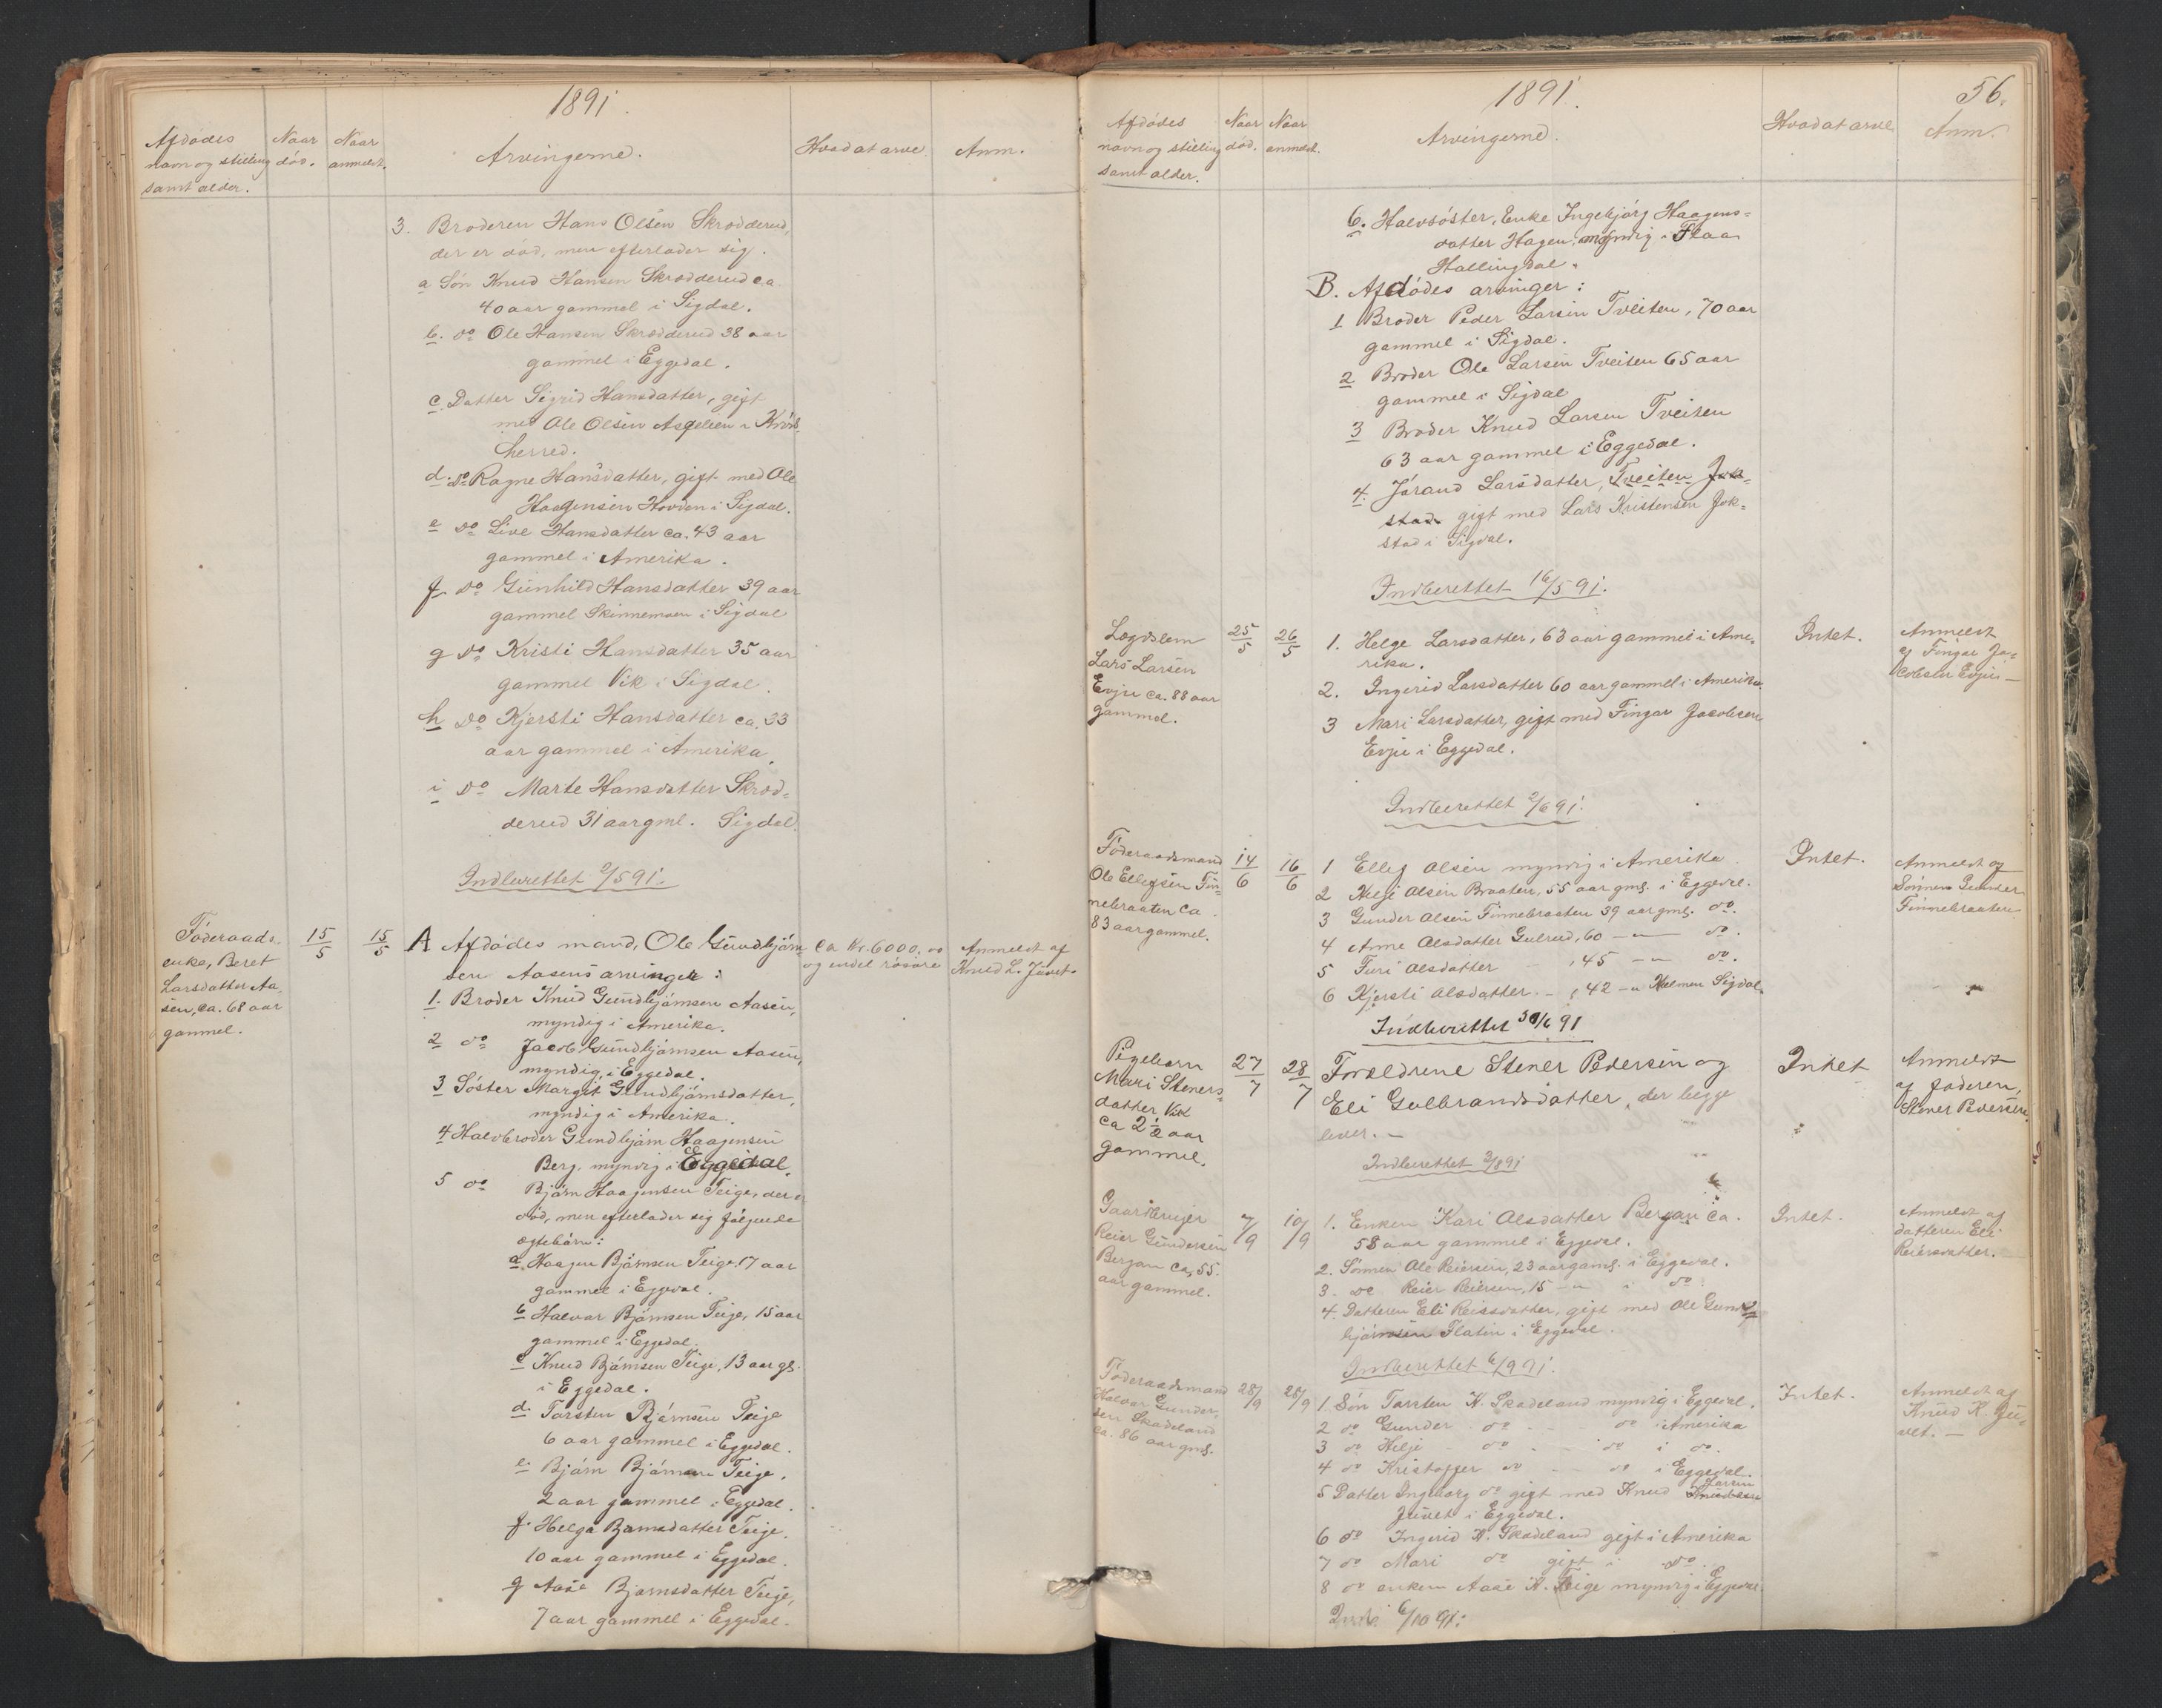 1891.
Afdødes
navn og stilling
samt alder.
Naar
død.
Naar
anmeldt.
Arvingerne.
Hvad at arve
Anm.
3. Broderen Hans Olsen Skrodderud,
der er død, men efterlader sig.
a Søn Knud Hansen Skrodderud ca
40 aar gammel i Sigdal.
b. do Ole Hansen Skrodderud 38 aar
gammel i Eggedal.
c. Datter Sigrid Hansdatter, gift
med Ole Olsen i Krøds-
herred.
d. do Ragne Hansdatter, gift med Ole
Haagensen Hovden i Sigdal.
e do Live Hansdatter ca. 43 aar
gammel i Amerika.
f do Gunhild Hansdatter 39 aar
gammel Skinnemoen i Sigdal
g do Kristi Hansdatter 35 aar
gammel Vik i Sigdal.
h do Kjersti Hansdatter ca. 33
aar gammel i Amerika.
i do Marte Hansdatter Skrod-
derud 31 aar gml. Sigdal.
Indberettet 9/5 91.
Føderaads-
enke, Beret
Larsdatter Aa-
sen, ca. 68 aar
gammel.
15/5
15/5
A Afdødes mand, Ole Gundbjørn-
sen Aasens arvinger:
1. Broder Knud Gundbjørnsen Aasen,
myndig i Amerika.
2 do Jacob Gundbjørnsen Aasen,
myndig, i Eggedal.
3 Søster Margit Gundbjørnsdatter,
myndig i Amerika.
4 Halvbroder Gundbjørn Haagensen
Berg, myndig i Eggedal.
5 do Bjørn Haagensen Teige, der er
død, men efterlader sig følgende
ægtebørn:
a. Haagen Bjørnsen Teige, 17 aar
gammel i Eggedal.
b Halvor Bjørnsen Teige, 15 aar
gammel i Eggedal.
c Knud Bjørnsen Teige, 13 aar gl.
i Eggedal.
d. Torsten Bjørnsen Teige
6 aar gammel i Eggedal.
e. Bjørn Bjørnsen Teige,
2 aar gammel i Eggedal.
f. Helga Bjørnsdatter Teige.
10 aar gammel i Eggedal.
g Aase Bjørnsdatter Teige,
7 aar gammel i Eggedal.
ca kr. 6000,00
og endel løsøre
Anmeldt af
Knud L. Juvet.
1891.
56.
Afdødes
navn og stilling
samt alder.
Naar
død.
Naar
anmeldt.
Arvingerne.
Hvad at arve
Anm.
6. Halvsøster, Enke Ingebjørg Haagens-
datter Hagen, myndig i Flaa
Hallingdal.
B. Afdødes arvinger:
1 Broder Peder Larsen Tveiten, 70 aar
gammel i Sigdal.
2 Broder Ole Larsen Tveiten 65 aar
gammel i Sigdal
3 Broder Knud Larsen Tveiten
63 aar gammel i Eggedal.
4. Jørand Larsdatter, Tveiten Jok-
stad gift med Lars Kristensen Jok-
stad i Sigdal.
Indberettet 16/5 91.
Lægdslem
Lars Larsen
Evju ca. 88 aar
gammel.
25/5
26/5
1. Helge Larsdatter, 63 aar gammel i Ame-
rika.
2. Ingerid Larsdatter 60 aar gammel i Amerika.
3 Mari Larsdatter, gift med Fingar Jacobsen
Evju i Eggedal.
Intet.
Anmeldt
af Fingar Ja-
cobsen Evju
Indberettet 2/6 91.
Føderaadsmand
Ole Ellefsen Fin-
nebraaten ca
83 aar gammel.
14/6
16/6
1 Ellef Olsen myndig i Amerika
2 Helge Olsen Braaten, 55 aar gml. i Eggedal.
3 Gunder Olsen Finnebraaten 39 aar gml. do.
4 Anne Olsdatter Gulrud, 60 — " — do.
5 Turi Olsdatter — , 45 — " do.
6 Kjersti Olsdatter — , 42 — " Sigdal.
Intet.
Anmeldt af
Sønnen Gunder
Finnebraaten
Indberettet 30/6 91
Pigebarn
Mari Steners-
datter Vik
ca 2½ aar
gammel.
27/7
28/7
Forældrene Stener Pedersen og
Eli Gulbrandsdatter, der begge
lever. —
Intet
Anmeldt
af faderen,
Stener Pedersen
Indberettet 3/8 91
Gaardbruger
Reier Gundersen
Bergan ca. 55.
aar gammel.
7/9
10/9
1. Enken Kari Olsdatter Bergan ca.
58 aar gammel i Eggedal.
2. Sønnen Ole Reiersen, 23 aar gaml. i Eggedal.
3. do Reier Reiersen, 15 — " i do.
4. Datteren Eli Reiersdatter, gift med Ole Gund-
bjørnsen Flatin i Eggedal.
Intet.
Anmeldt af
datteren Eli
Reiersdatter.
Indberettet /9 91.
Føderaadsmand
Halvor Gunder-
sen Skadeland
ca. 86 aar gml.
28/9
28/9
1. Søn Torsten H. Skadeland myndig i Eggedal.
2 do Gunder do — do i Amerika
3 do Helge — do — do i do.
4 do Kristoffer do — do i Eggedal.
5 Datter Ingeborg do gift med Knud Knudsen Larsen
Juvet i Eggedal.
6 do Ingerid H. Skadeland gift i Amerika
7 do Mari do gift i do.
8 do enken Aase H. Teige myndig i Eggedal.
Intet.
Anmeldt af
Knud
Indb. 6/10 91.